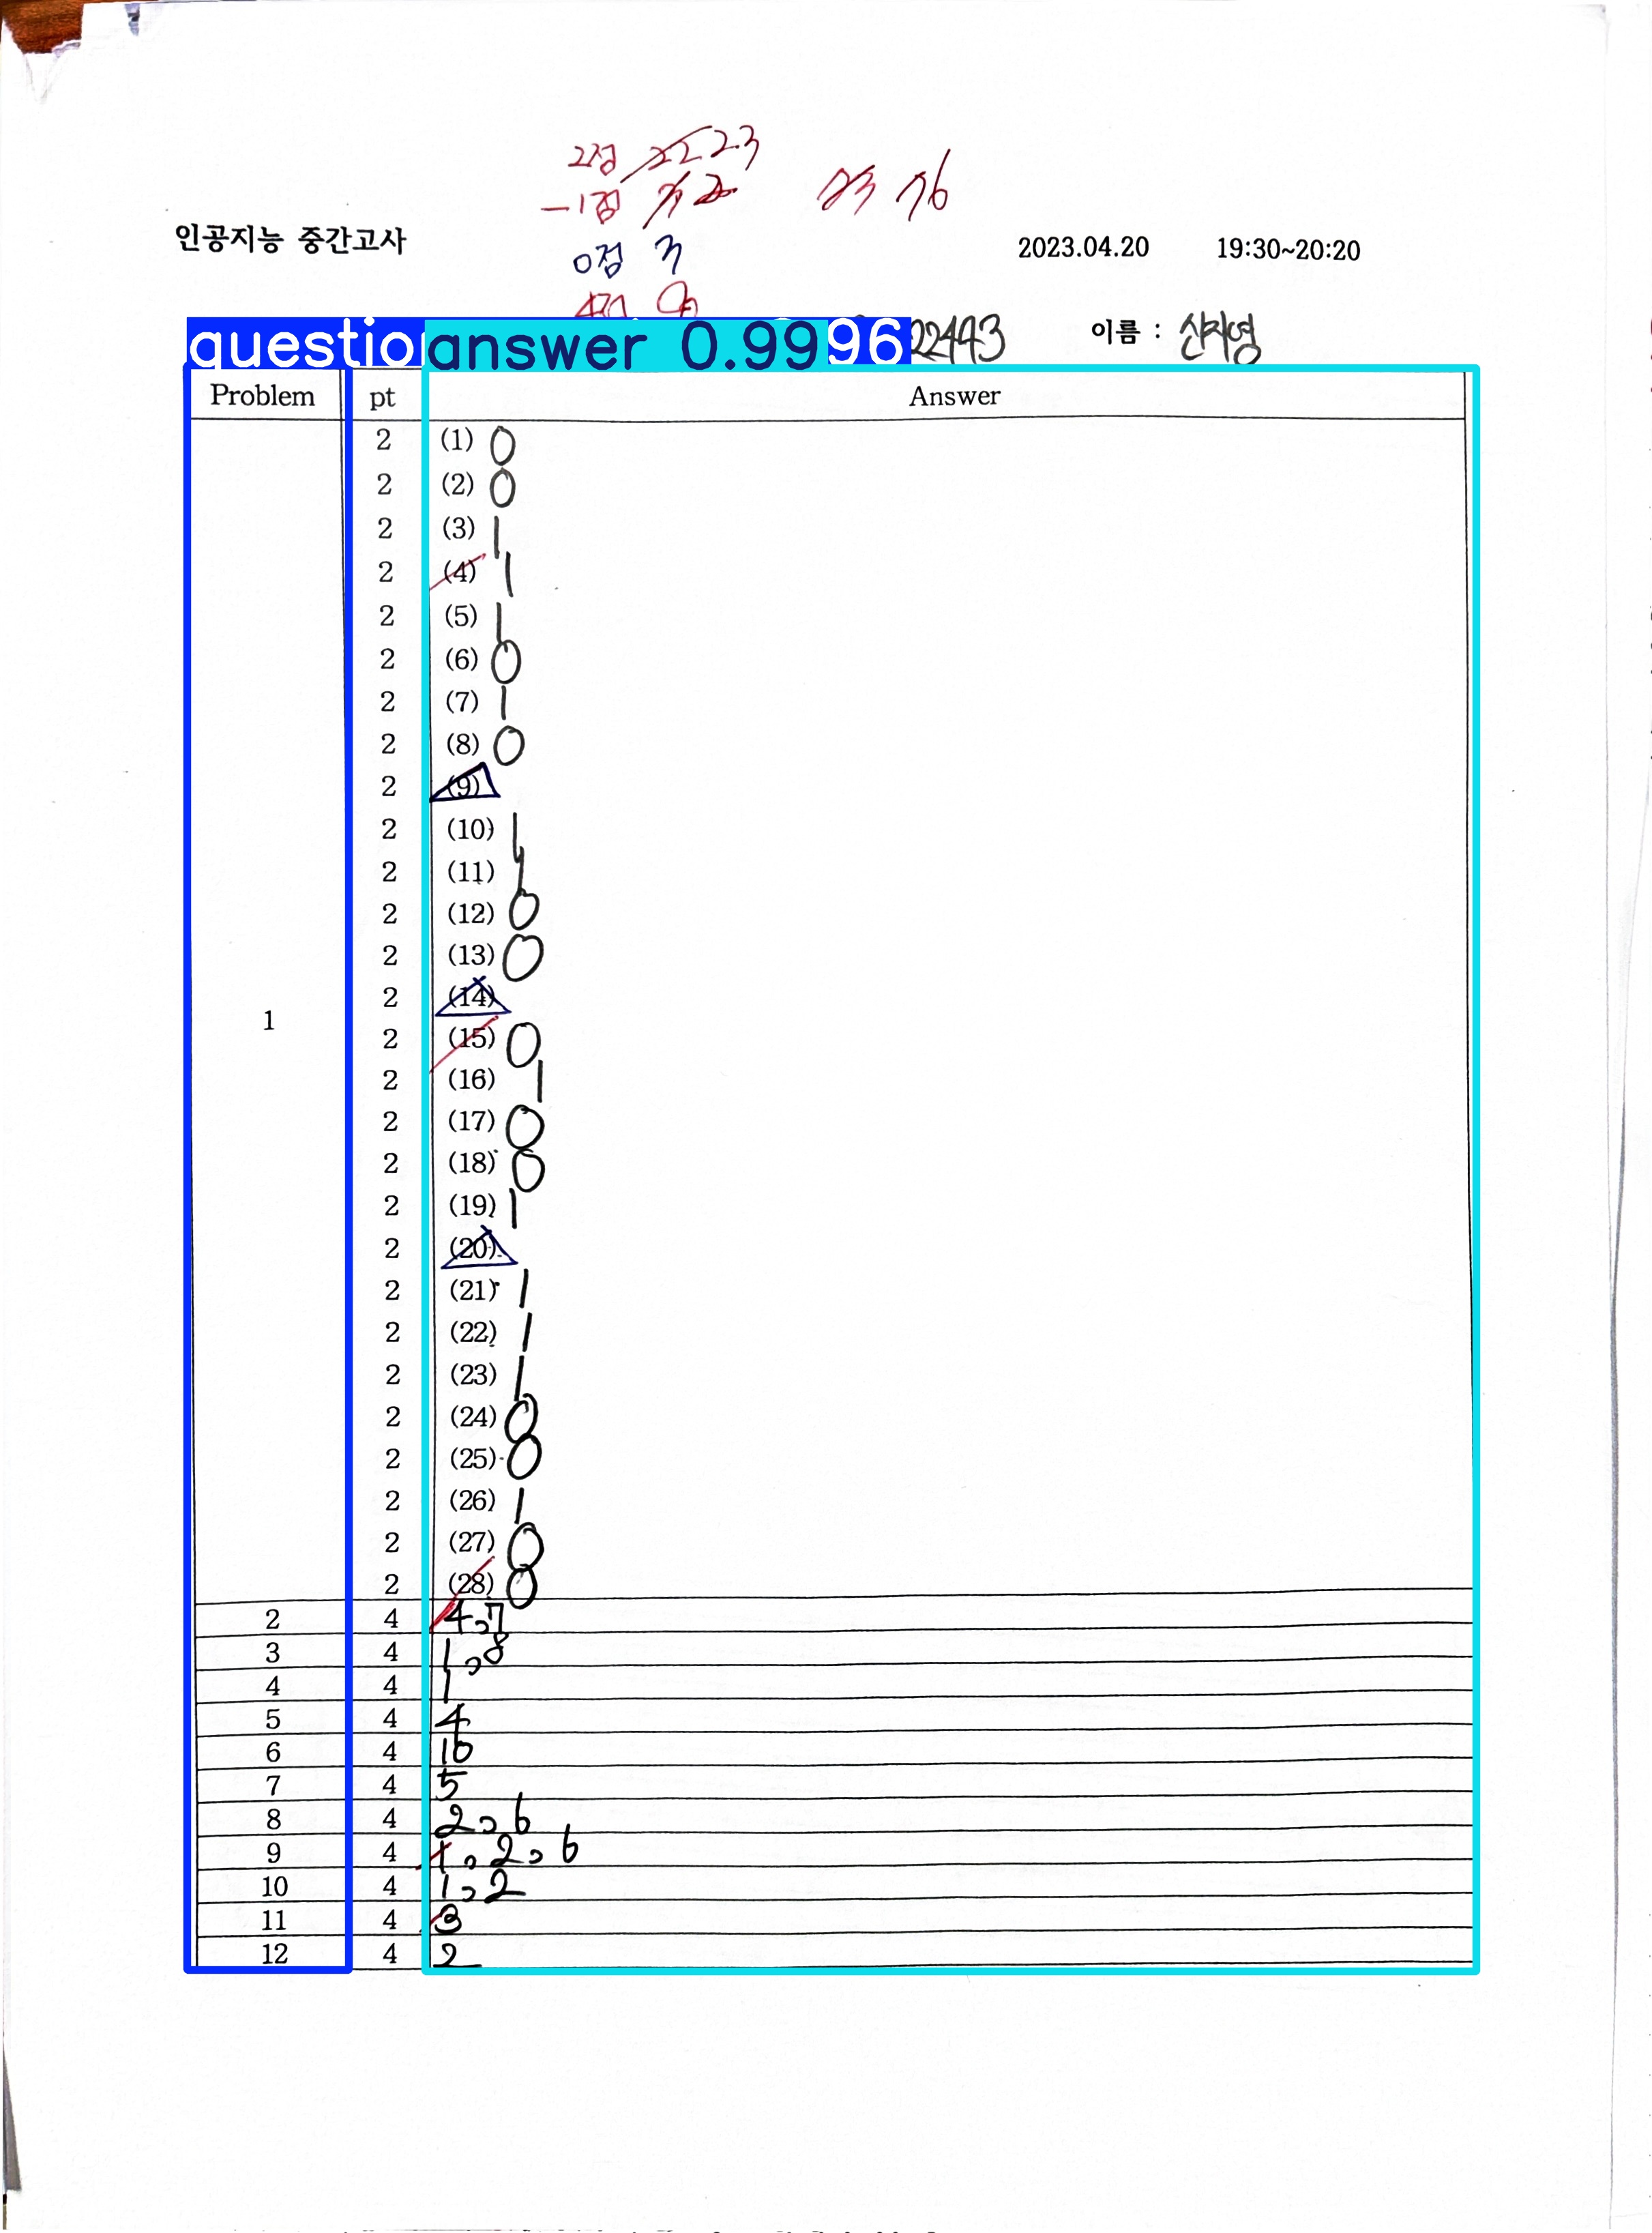 2점 23
-1점
0점 3
76
인공지능 중간고사 2023.04.20 19:30~20:20
questio answer 0.99 96 22493 이름 : 신지영
Problem pt Answer
2 (1) 0
2 (2) 0
2 (3) 1
2 (4) 1
2 (5) 1
2 (6) 0
2 (7) 1
2 (8) 0
2 (9)
2 (10) 1
2 (11) 1
2 (12) 0
2 (13) 0
2 (14)
1
2 (15) 0
2 (16) 1
2 (17) 0
2 (18) 0
2 (19) 1
2 (20)
2 (21) 1
2 (22) 1
2 (23) 1
2 (24) 0
2 (25) 0
2 (26) 1
2 (27) 0
2 (28) 0
2 4 4,7
3 4 1,8
4 4 1
5 4 4
6 4 16
7 4 5
8 4 2,6
9 4 1,2,6
10 4 1,2
11 4 3
12 4 2